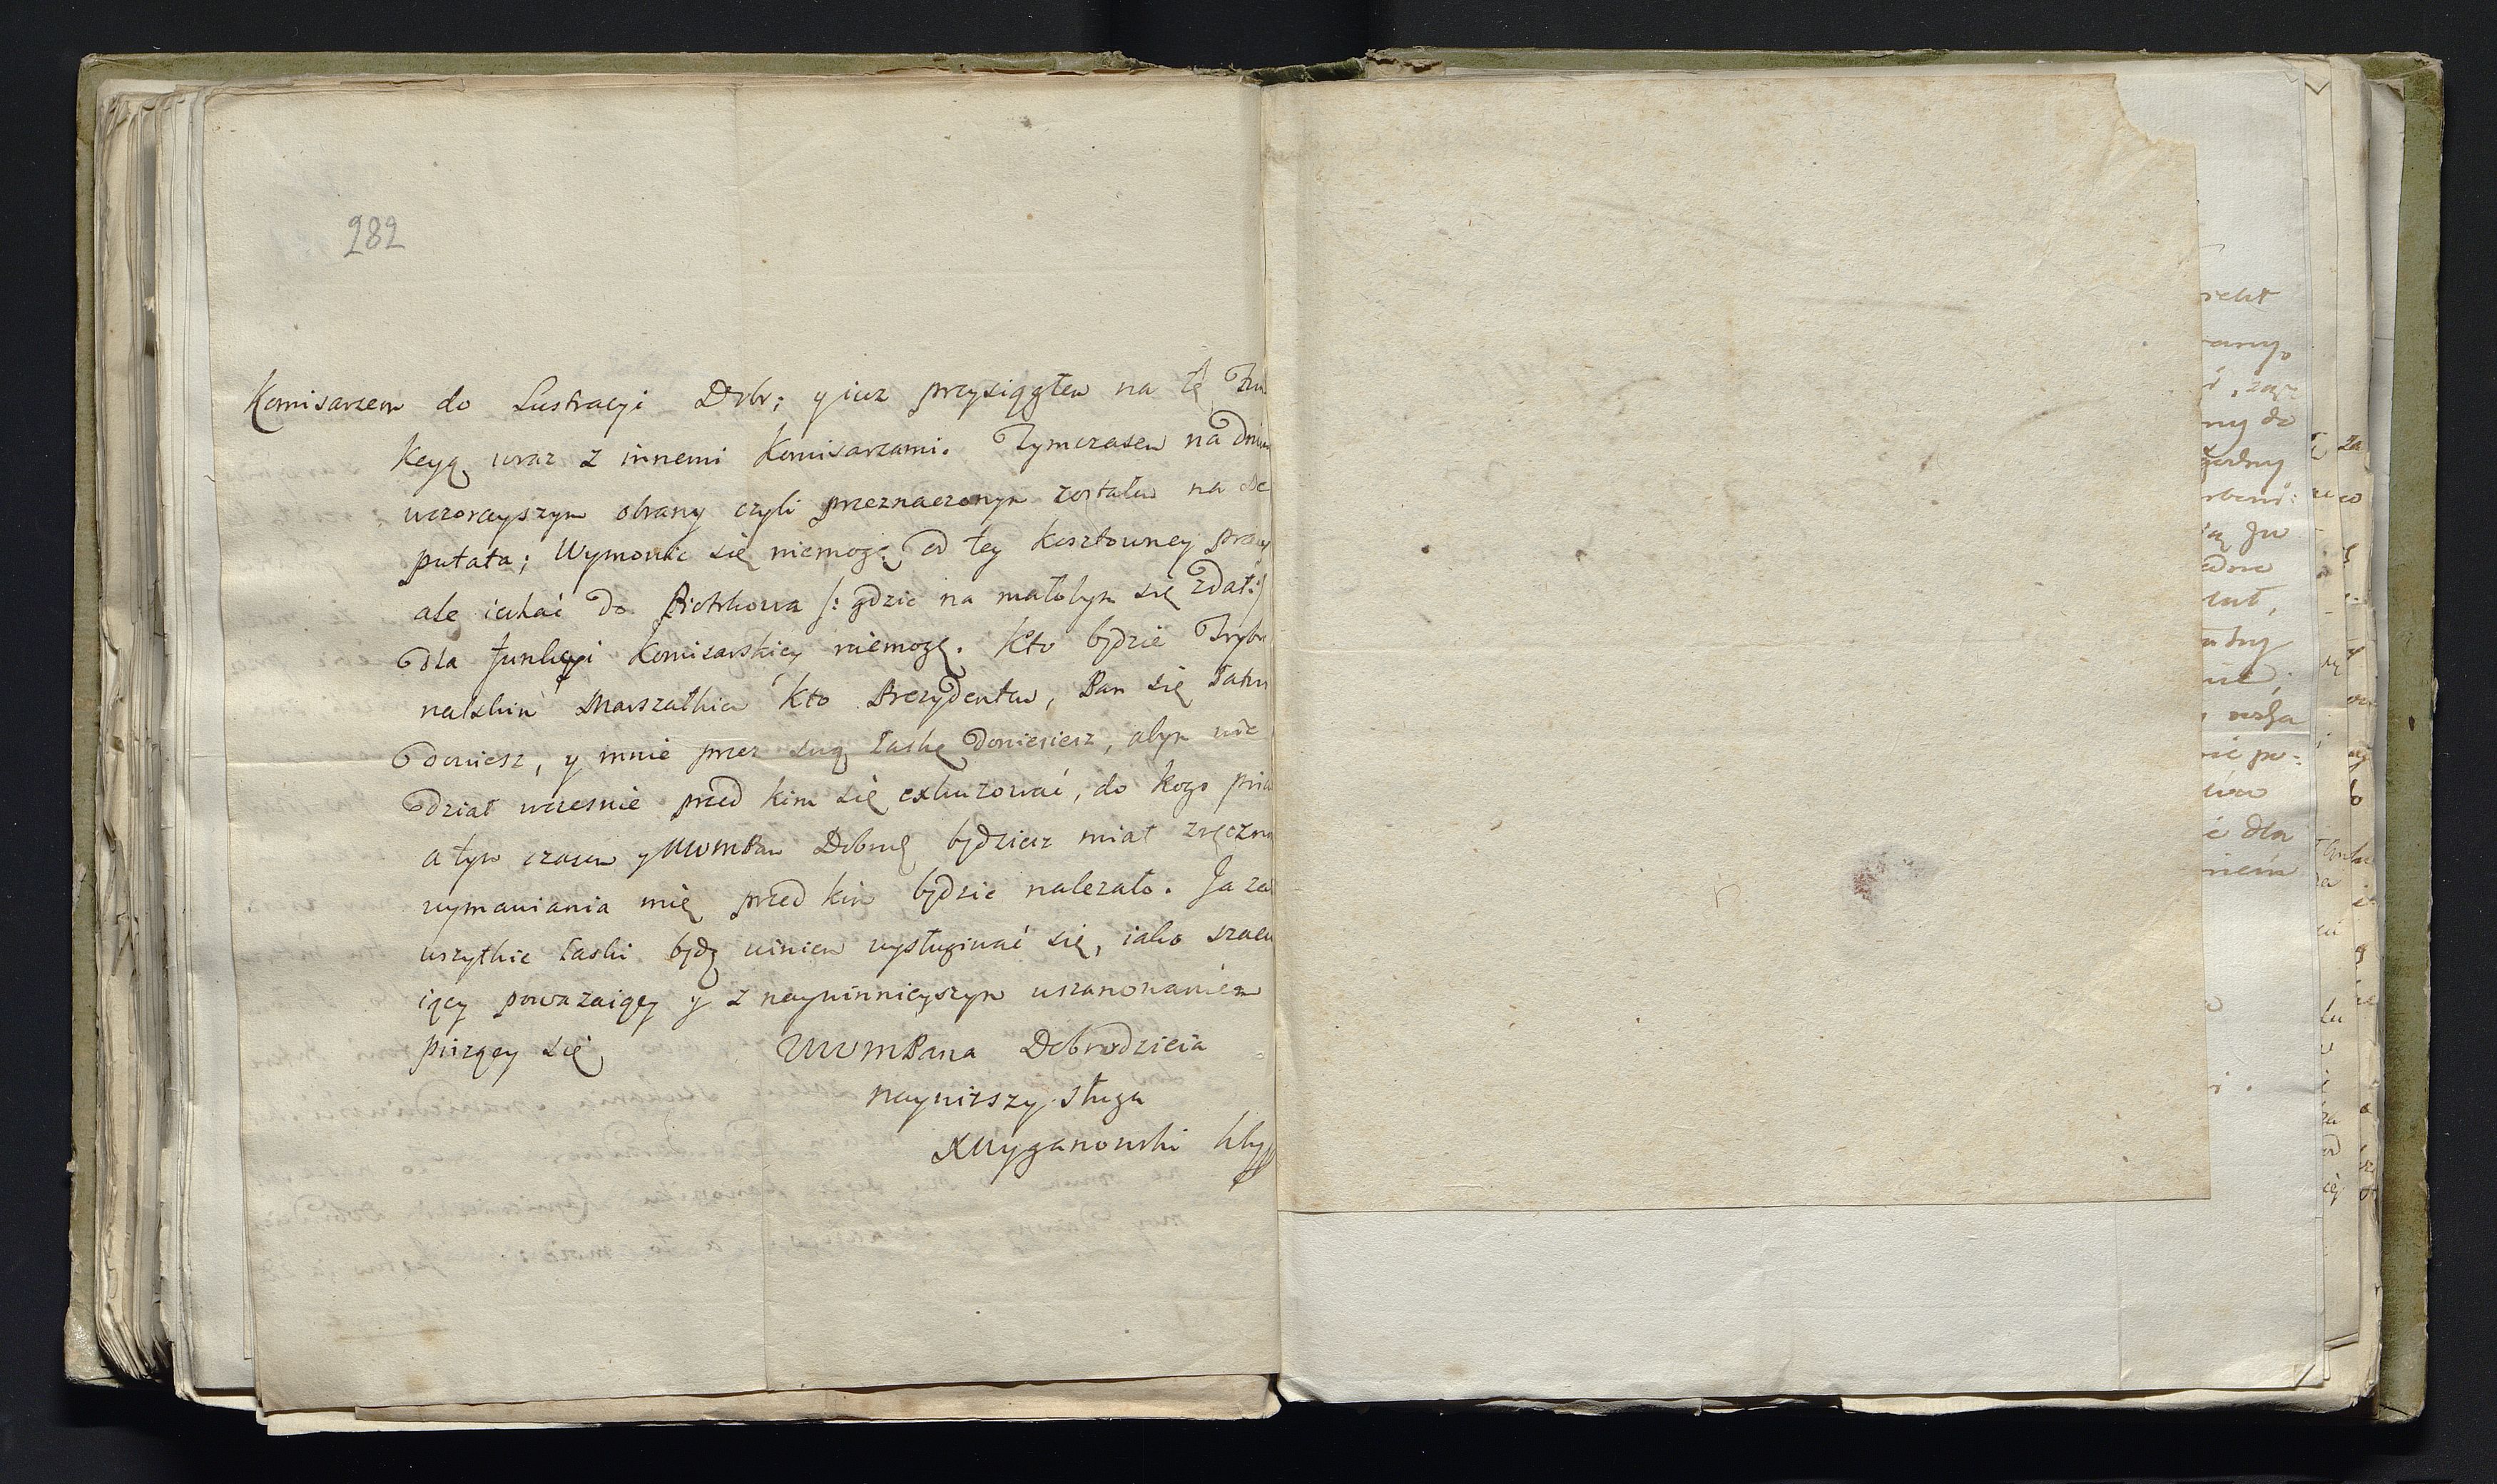 282
Komisarzem do Lustracyi Dobr; y iuz przysiągłem na tę Fun
kcyą wraz z innemi Komisarzami. Tymczasem na Dniu
wczorayszym obrany czyli przeznaczonym zostałem na De
putata; Wymowic się niemogę od tey kosztowney pracy
ale iechać do Piotrkowa /: gdzie na małobym się zdał:/
dla funkcyi Komisarskiey niemogę. Kto będzie Trybu
nalskim Marszałkiem Kto Prezydentem, Pan się Łatwo
Dowiesz, y mnie przez swą Łaskę Doniesiesz, abym wie
dział wcześnie przed kim się exkuzować, do kogo
a tym czasem y WWMPan Dobrodz będziesz miał zręczn
wymawiania mię przed kim będzie nalezało. Ja za
wszytkie Łaski będę winien wysługiwać się, iako szacu
iący powazaiący y z naywinnieyszym uszanowaniem
piszący się
WWMPana Dobrodzieia
nayniższy sługa
XWyganowski
rekt
rany
ny do
żadny
dla
niem